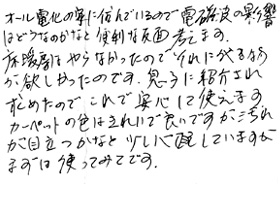 オール電化の家に住んでいるので電磁波の影響
はどうなのかなと便利な反面考えます。
床暖房はやらなかったのでそれに代る物
が欲しかったのです。息子に紹介され
求めたのでこれで安心して使えます
カーペットの色はきれいで良いですが汚れ
が目立つかなと少し心配していますが
まずは使ってみてです。